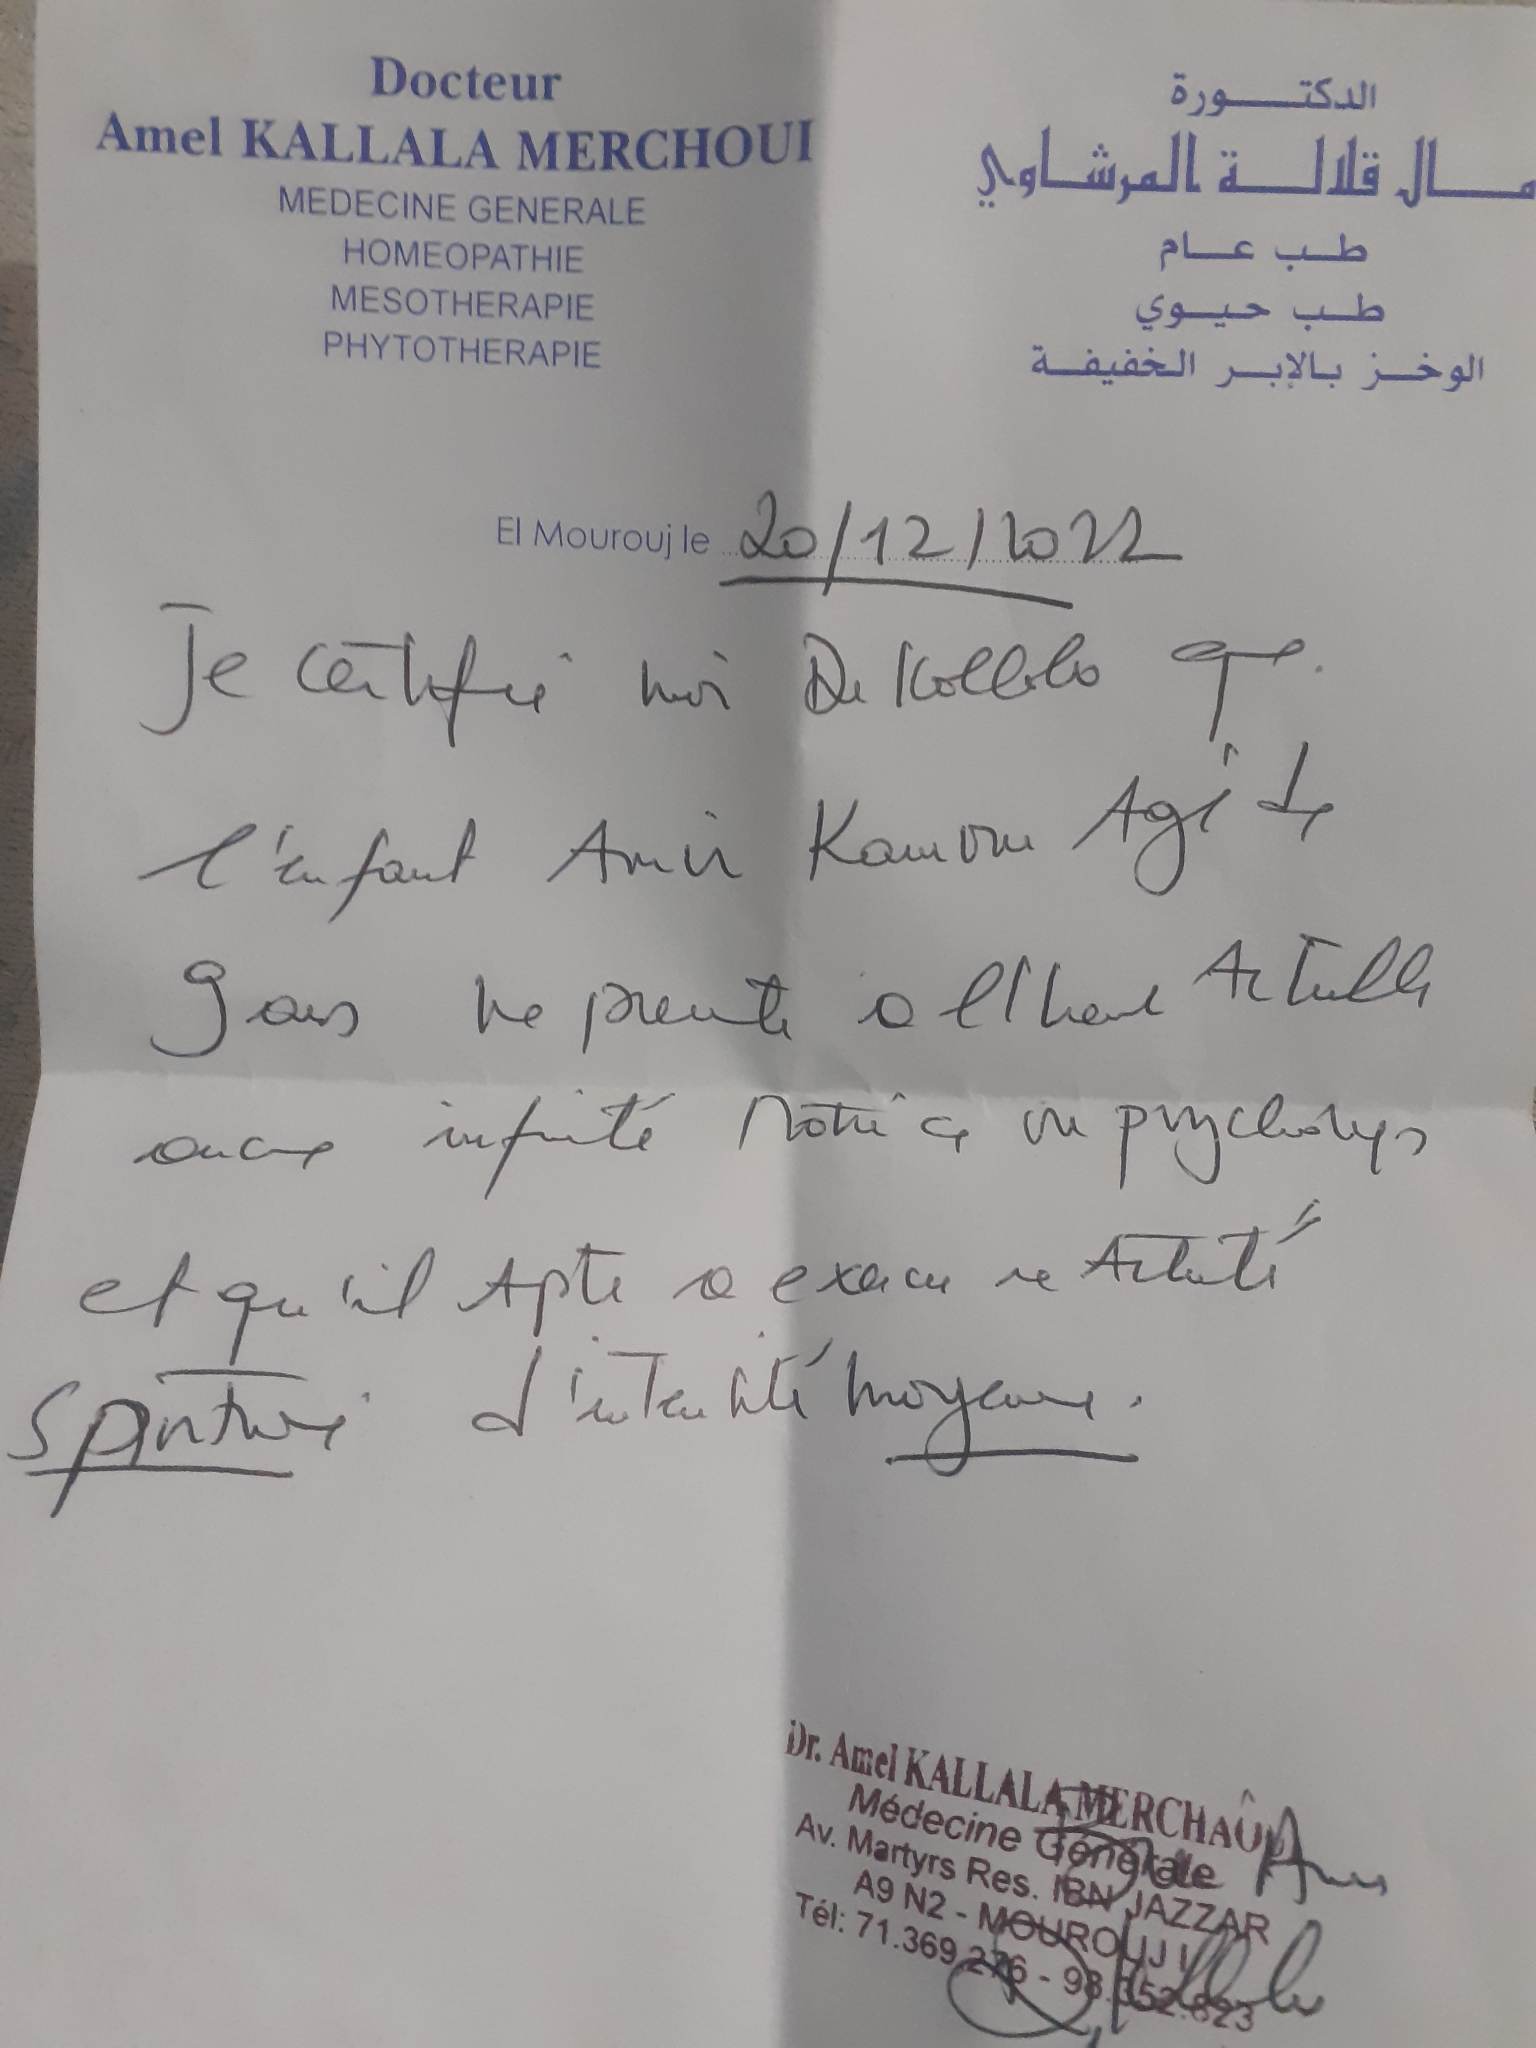 Docteur
Amel KALLALA MERCHOUI
MEDECINE GENERALE
HOMEOPATHIE
MESOTHERAPIE
PHYTOTHERAPIE
الدكتـــورة
مـال قلالـة المرشـاوي
طـب عـام
طـب حيـوي
الوخـز بـالإبـر الخفيفـة
El Mourouj le 20/12/2022
Je certifie moi Dr Kallala que
l'enfant Amir Agé de
9 ans ne présente a l'heure Actuelle
aucune infirmité Motrice ou psychologique
et qu'il Apte a exercer une Activité
Sportive d'intensité moyenne.
Dr. Amel KALLALA MERCHAOUI
Médecine Générale
Av. Martyrs Res. IBN JAZZAR
A9 N2 - MOUROUJ I
Tél: 71.369.276 - 98.352.823